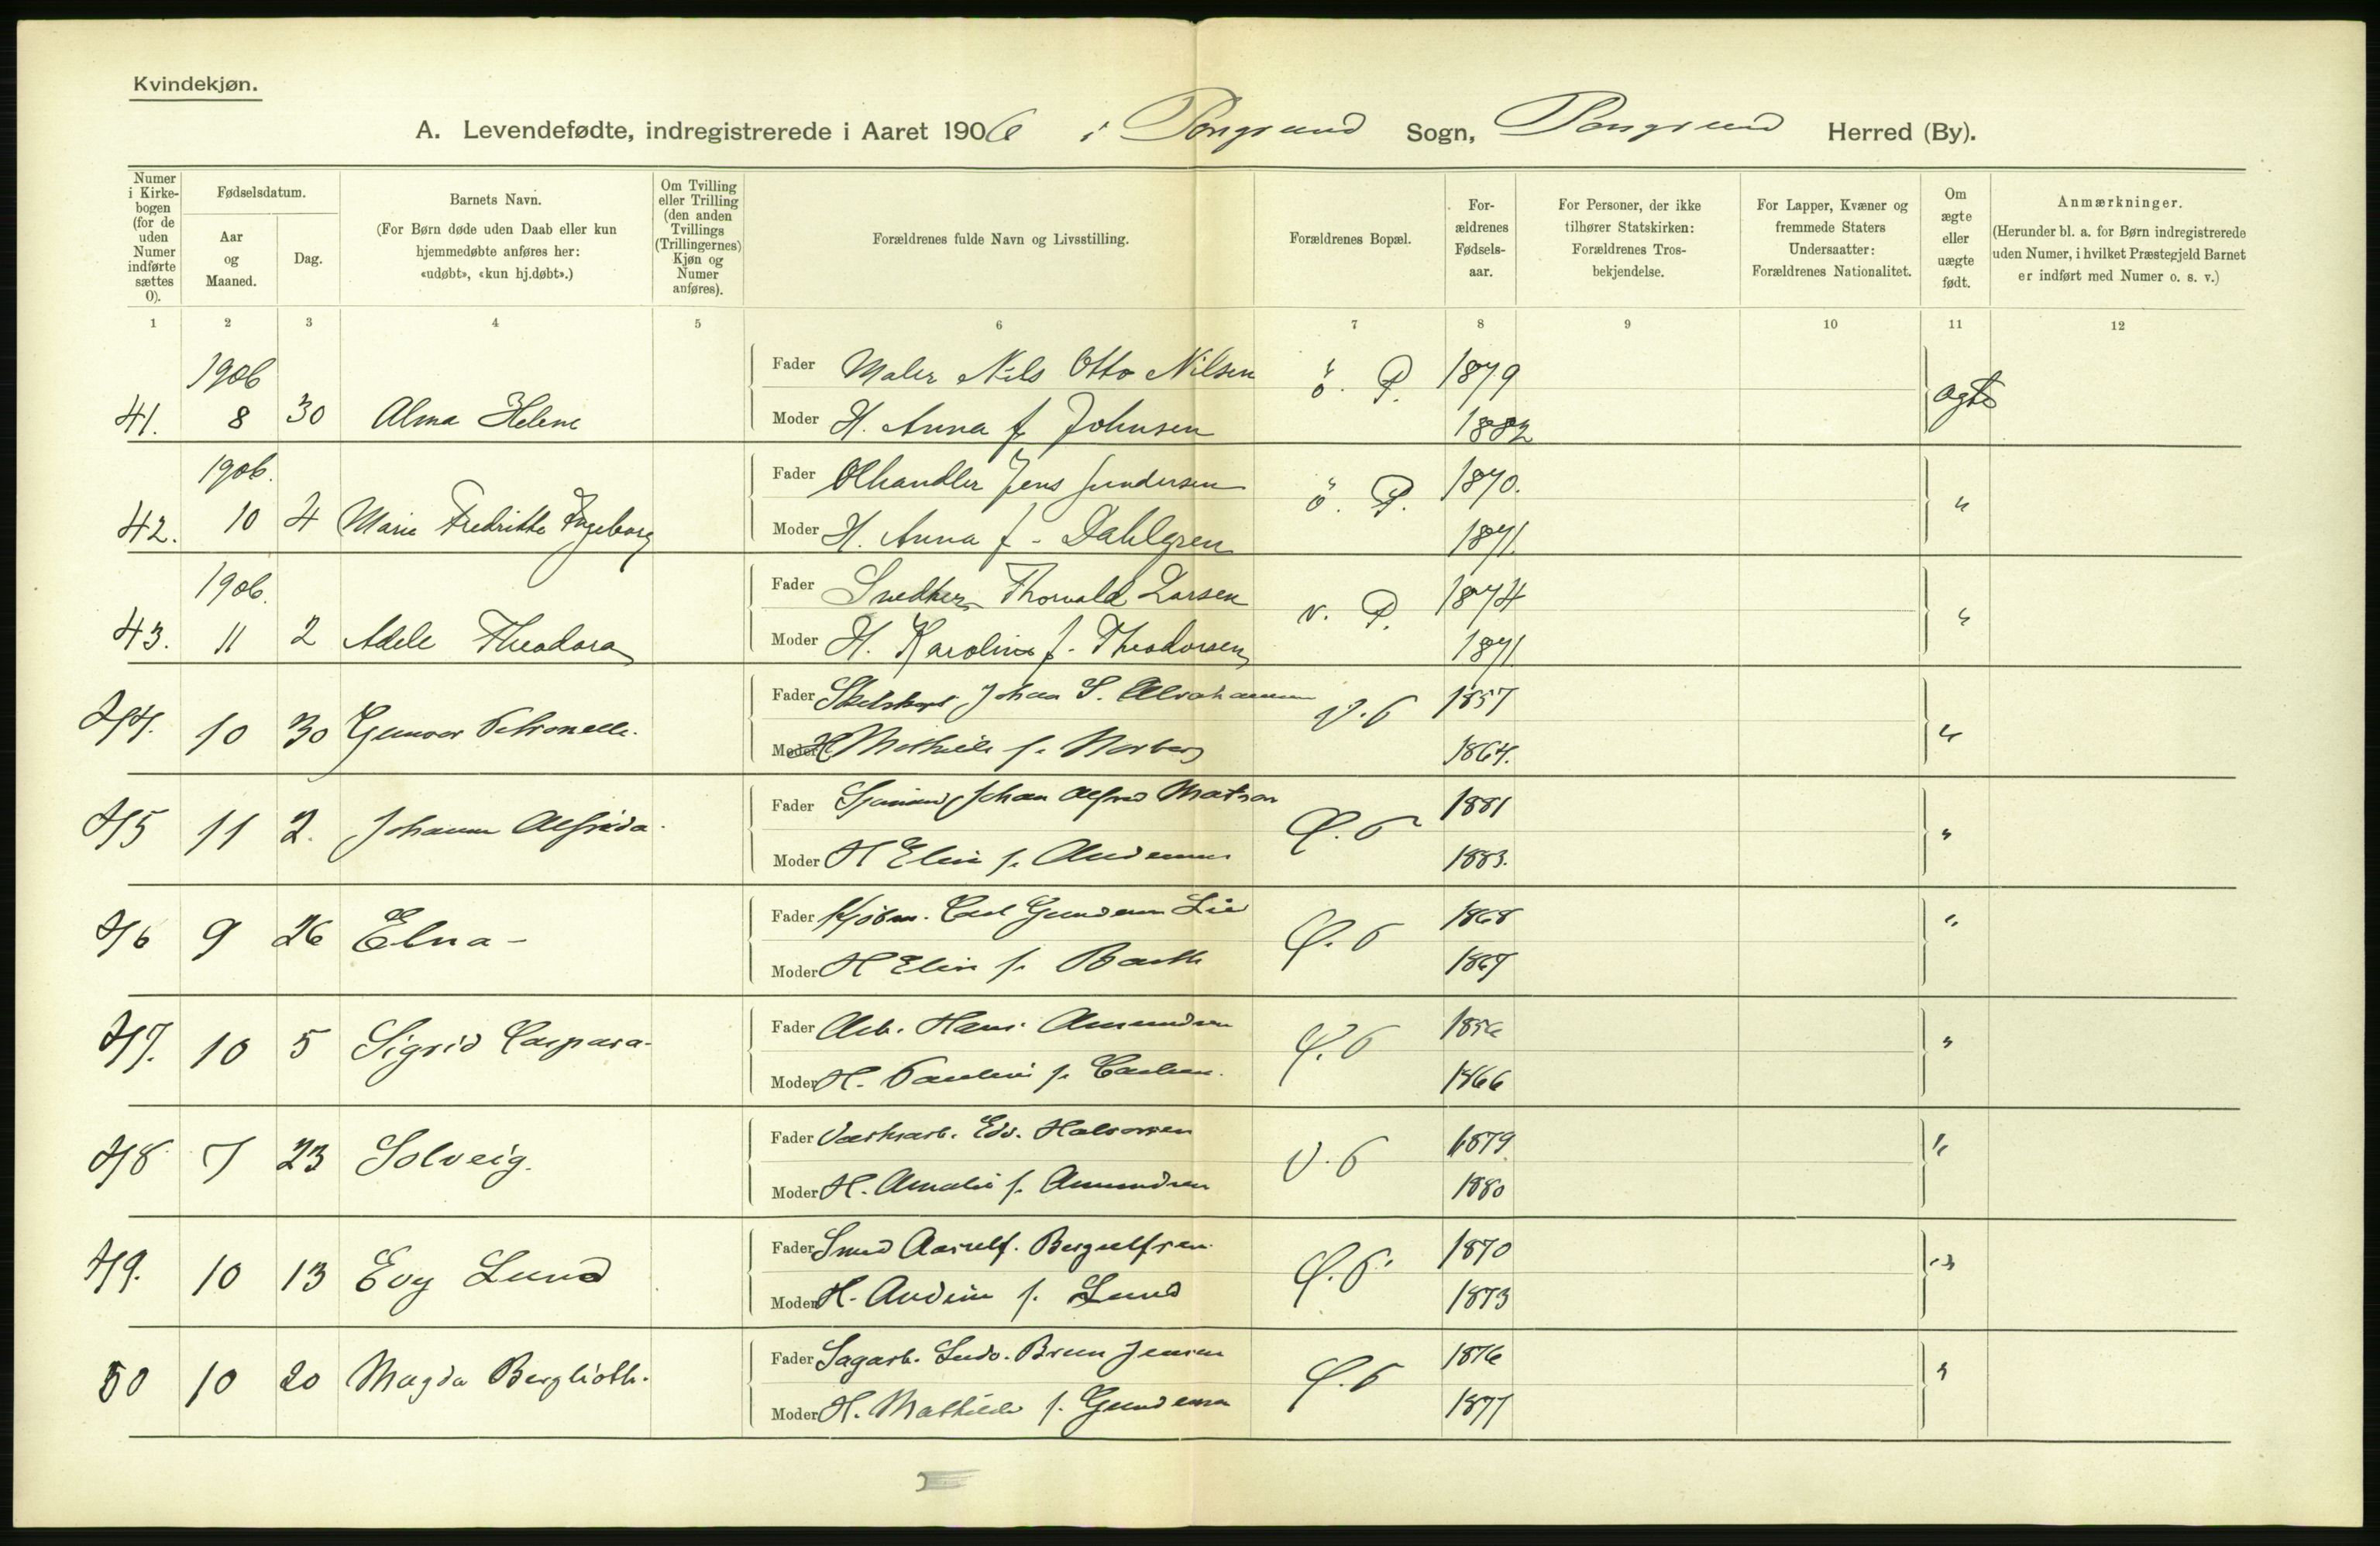 Kvindekjøn.
A. Levendefødte, indregistrerede i Aaret 1906 i Porsgrund Sogn, Porsgrund Herred (By).
Numer i Kirkebogen (for de uden Numer indførte sættes 0).
Fødselsdatum.
Aar og Maaned.
Dag.
Barnets Navn.
(For Børn døde uden Daab eller kun hjemmedøbte anføres her: «udøbt», «kun hj.døbt».)
Om Tvilling eller Trilling (den anden Tvillings (Trillingernes) Kjøn og Numer anføres).
Forældrenes fulde Navn og Livsstilling.
Forældrenes Bopæl.
Forældrenes Fødselsaar.
For Personer, der ikke tilhører Statskirken: Forældrenes Trosbekjendelse.
For Lapper, Kvæner og fremmede Staters Undersaatter: Forældrenes Nationalitet.
Om ægte eller uægte født.
Anmærkninger.
(Herunder bl. a. for Børn indregistrerede uden Numer, i hvilket Præstegjeld Barnet er indført med Numer o. s. v.)
1 2 3 4 5 6 7 8 9 10 11 12
1906 Fader Maler Nils Otto Nilsen ö. P. 1879
41. 8 30 Alma Helene Moder H. Anna f. Johnsen 1882 ægte
1906. Fader Ølhandler Jens Gundersen ö. P. 1870.
42. 10 4 Marie Fredrikke Ingeborg Moder H. Anna f. Dahlgren 1871 "
1906. Fader Snedker Thorvald Larsen v. P. 1874
43. 11 2 Adele Theodora Moder H. Karoline f. Theodorsen 1871 "
Fader Johan S. Abrahamsen V. P 1857
44. 10 30 Gunvor Petronelle. Moder H Mathilde f. Norberg 1864. "
Fader Sjømand Johan Alfred Matson Ø. P 1881
45 11 2. Johanne Alfrida. Moder H Elin f. Andersen 1883. "
Fader Kjøbm. Carl Gundersen Lie Ø. P 1868
46 9 26 Elna - Moder H Elise f. Barth 1867 "
Fader Arb. Hans Amundsen Ø. P 1856
47. 10 5 Sigrid Caspara. Moder H. Pauline f. Carlsen. 1866 "
Fader Værksarb. Edv. Halvorsen V. P 1879
48 7 23 Solveig. Moder H. Amalie f. Amundsen 1880 "
Fader Smed Aasulf. Bergulfsen. Ø. P. 1870
49. 10 13 Evy Lund Moder H. Andrine f. Lund 1873 "
Fader Sagarb. Ludv. Brun Jensen Ø. P 1876
50 10 20 Magda Berglioth. Moder H. Mathilde f. Gundersen 1877 "